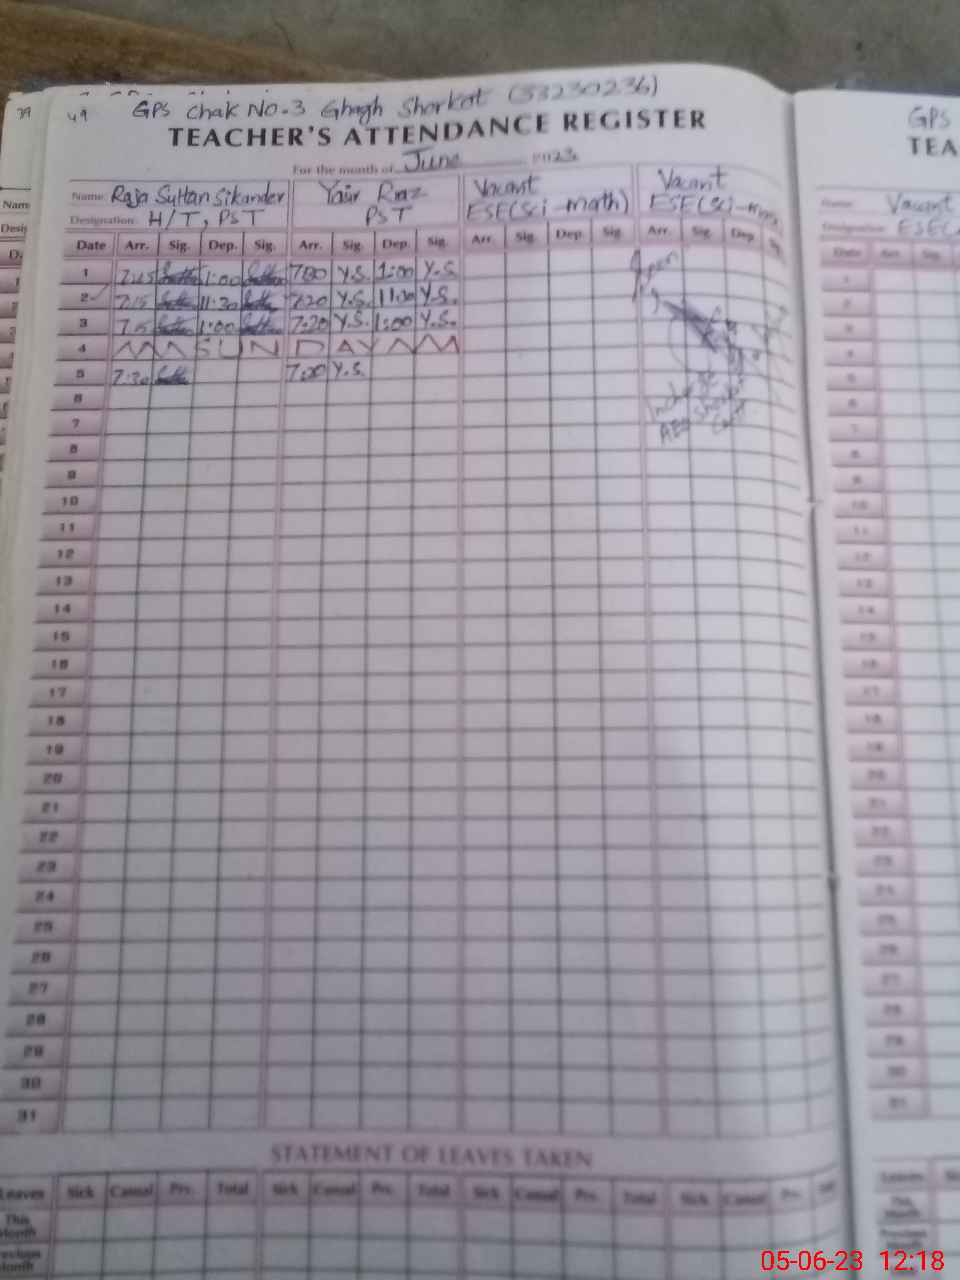 49 GPS Chak No.3 Ghagh Shorkot (33230236) GPS
TEACHER'S ATTENDANCE REGISTER TEA
For the month of June 2023
Name: Raja Sultan Sikander Yasir Riaz Vacant Vacant Name: Vacant
Designation: H/T, PST PST ESE(Sci-math) ESE(Sci-math) Designation: ESE(
Date Arr. Sig. Dep. Sig. Arr. Sig. Dep. Sig. Arr. Sig. Dep. Sig. Arr. Sig. Dep. Sig. Date Arr. Sig.
1 1:00 7:00 Y.S. 1:00 Y.S. 1
2 7:15 11:30 7:20 Y.S. 11:30 Y.S. 2
3 7:15 1:00 7:20 Y.S. 1:00 Y.S. 3
4 SUNDAY 4
5 7:20 7:00 Y.S. 5
6 Incharge 6
7 AEO Shorkot 7
8 8
9 9
10 10
11 11
12 12
13 13
14 14
15 15
16 16
17 17
18 18
19 19
20 20
21 21
22 22
23 23
24 24
25 25
26 26
27 27
28 28
29 29
30 30
31 31
STATEMENT OF LEAVES TAKEN
Leaves Sick Casual Prv. Total Sick Casual Prv. Total Sick Casual Prv. Total Sick Casual Prv. Leaves
This Month This Month
Previous Month
05-06-23 12:18